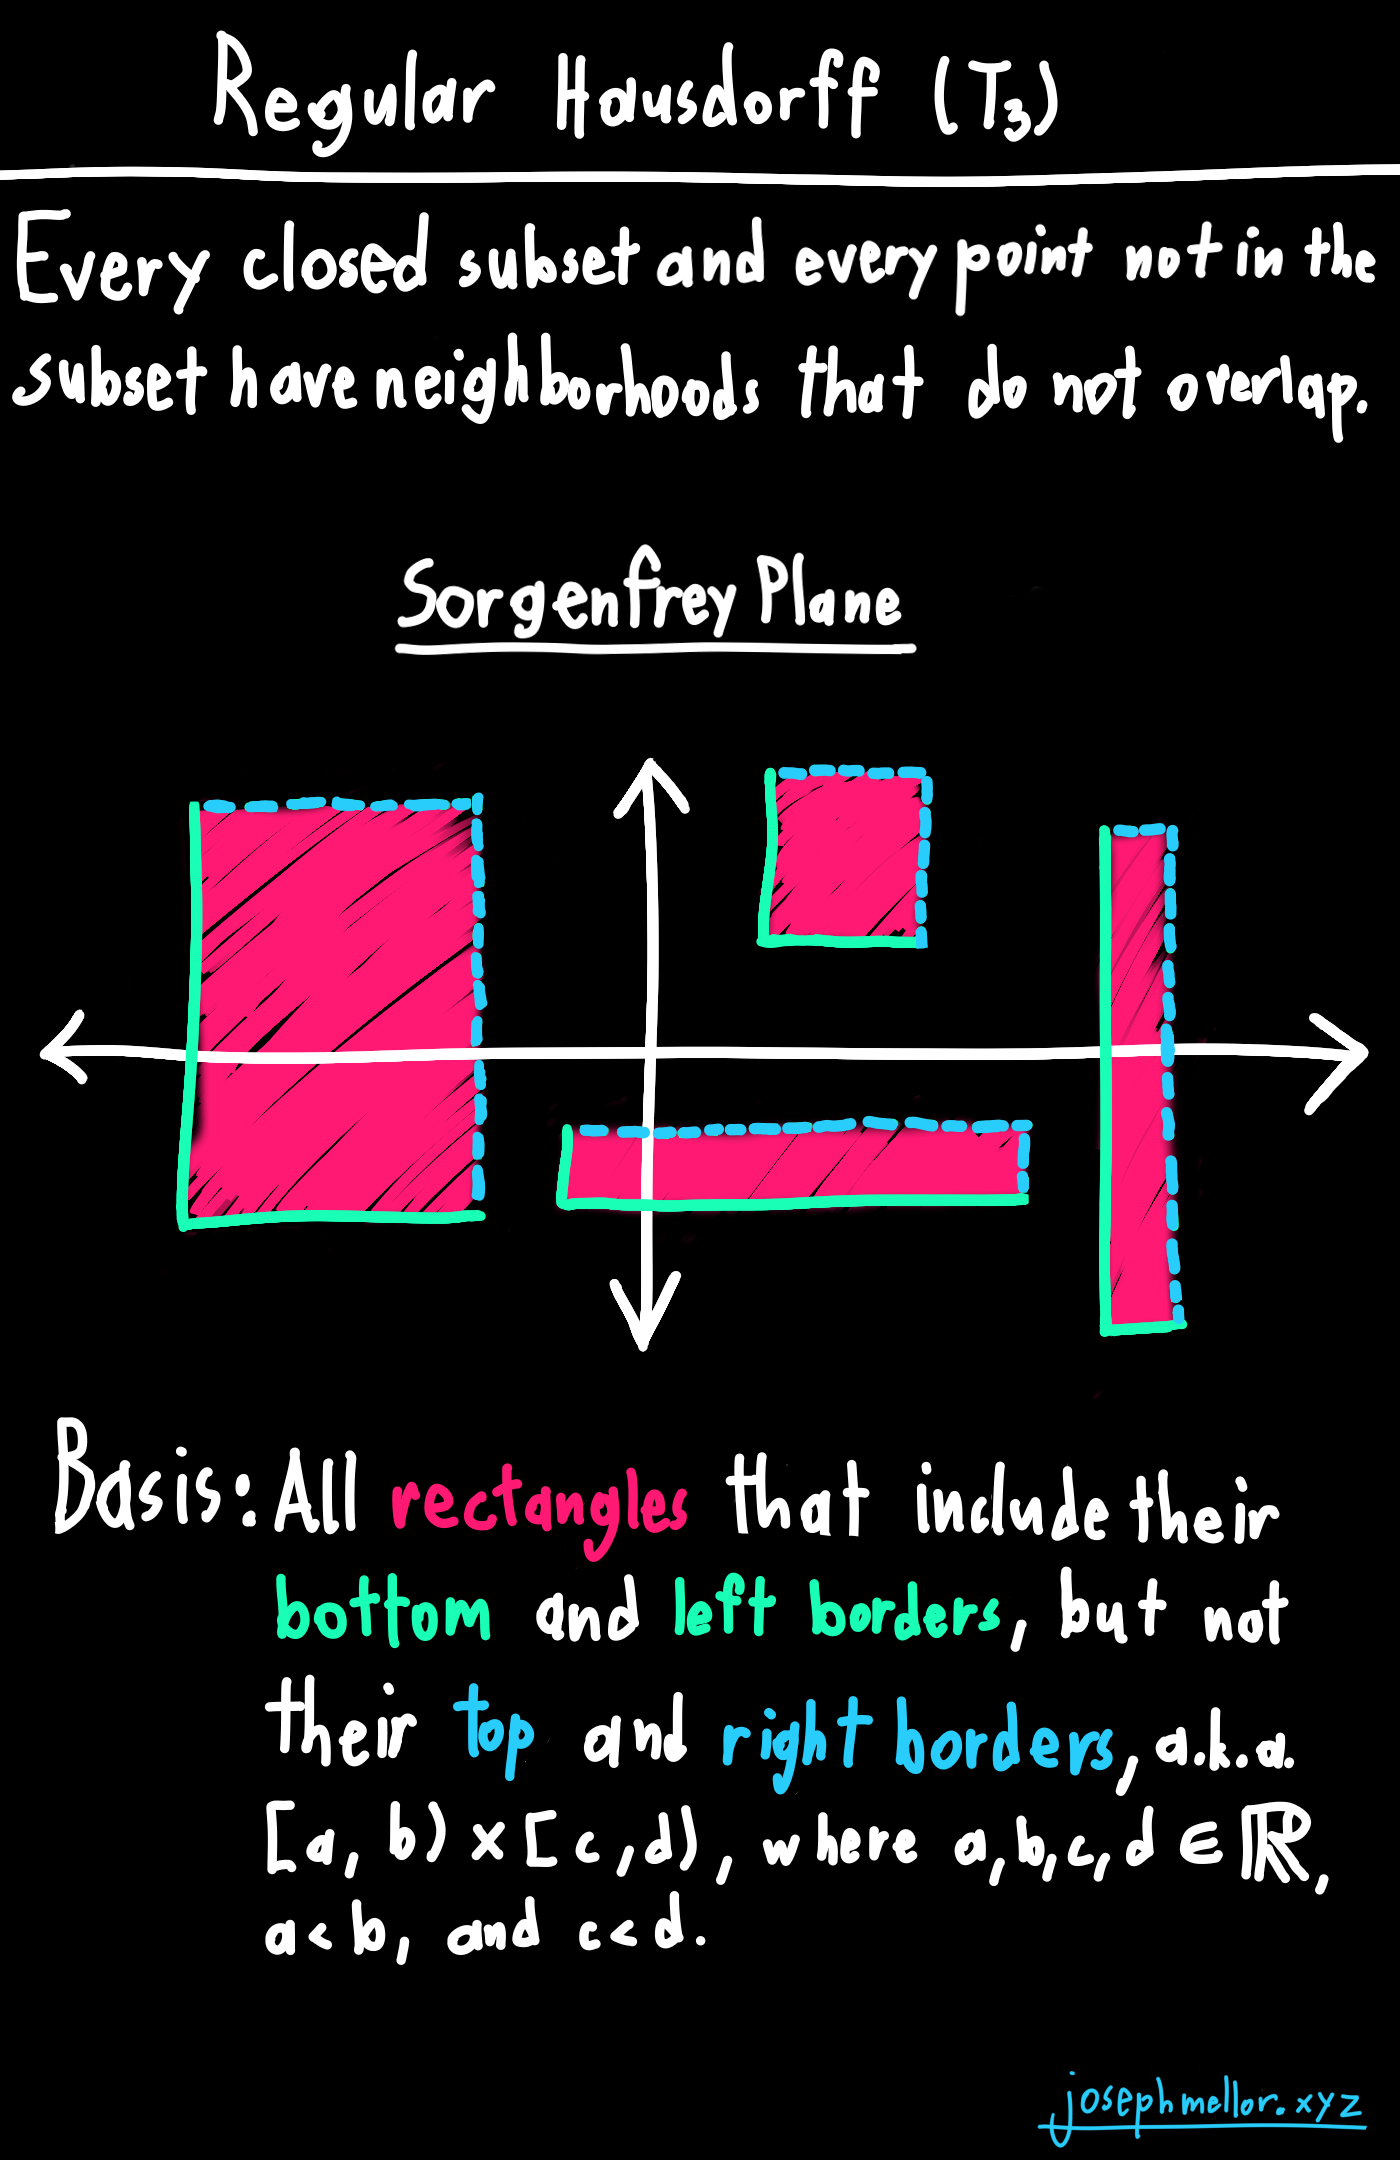 Regular Hausdorff (T₃)
Every closed subset and every point not in the
subset have neighborhoods that do not overlap.
Sorgenfrey Plane
Basis: All rectangles that include their
bottom and left borders, but not
their top and right borders, a.k.a.
[a, b) × [c, d), where a, b, c, d ∈ ℝ,
a < b, and c < d.
josephmellor.xyz